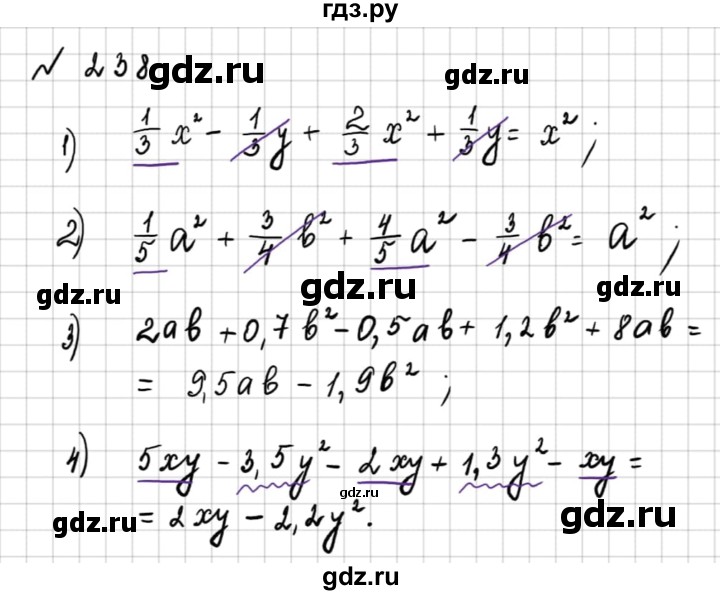 гдз.ру
№ 238
gdz.ru
gdz.ru
1) 1/3 x² - 1/3 y + 2/3 x² + 1/3 y = x²;
2) 1/5 a² + 3/4 b² + 4/5 a² - 3/4 b² = a²;
gdz.ru
gdz.ru
gdz.ru
3) 2ab + 0,7b² - 0,5ab + 1,2b² + 8ab =
= 9,5ab - 1,9b²;
4) 5xy - 3,5y² - 2xy + 1,3y² - xy =
gdz.ru
= 2xy - 2,2y².
gdz.ru
gdz.ru
gdz.ru